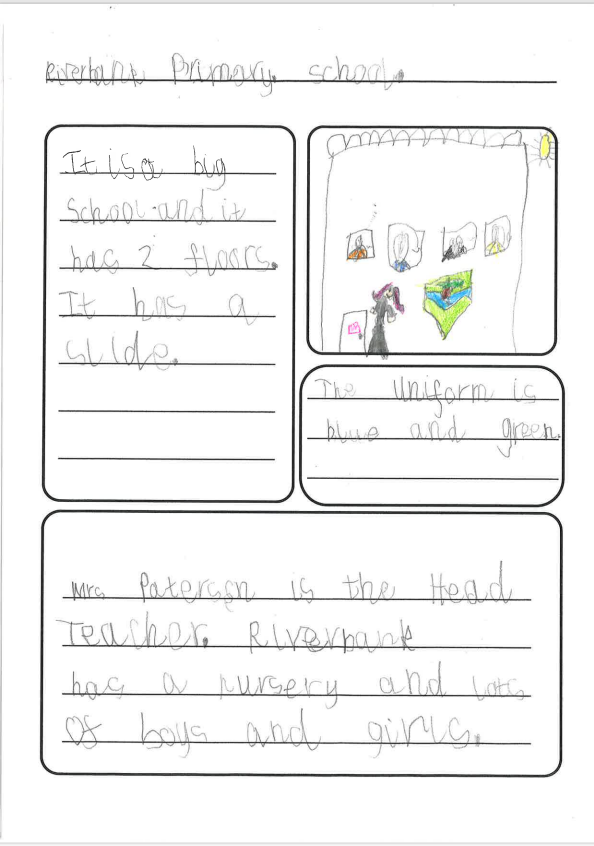 Riverbank Primary school.
It is a big
School and it
has 2 floors.
It has a
slide.
The Uniform is
blue and green.
Mrs Paterson is the Head
Teacher. Riverbank
has a nursery and lots
Of boys and girls.